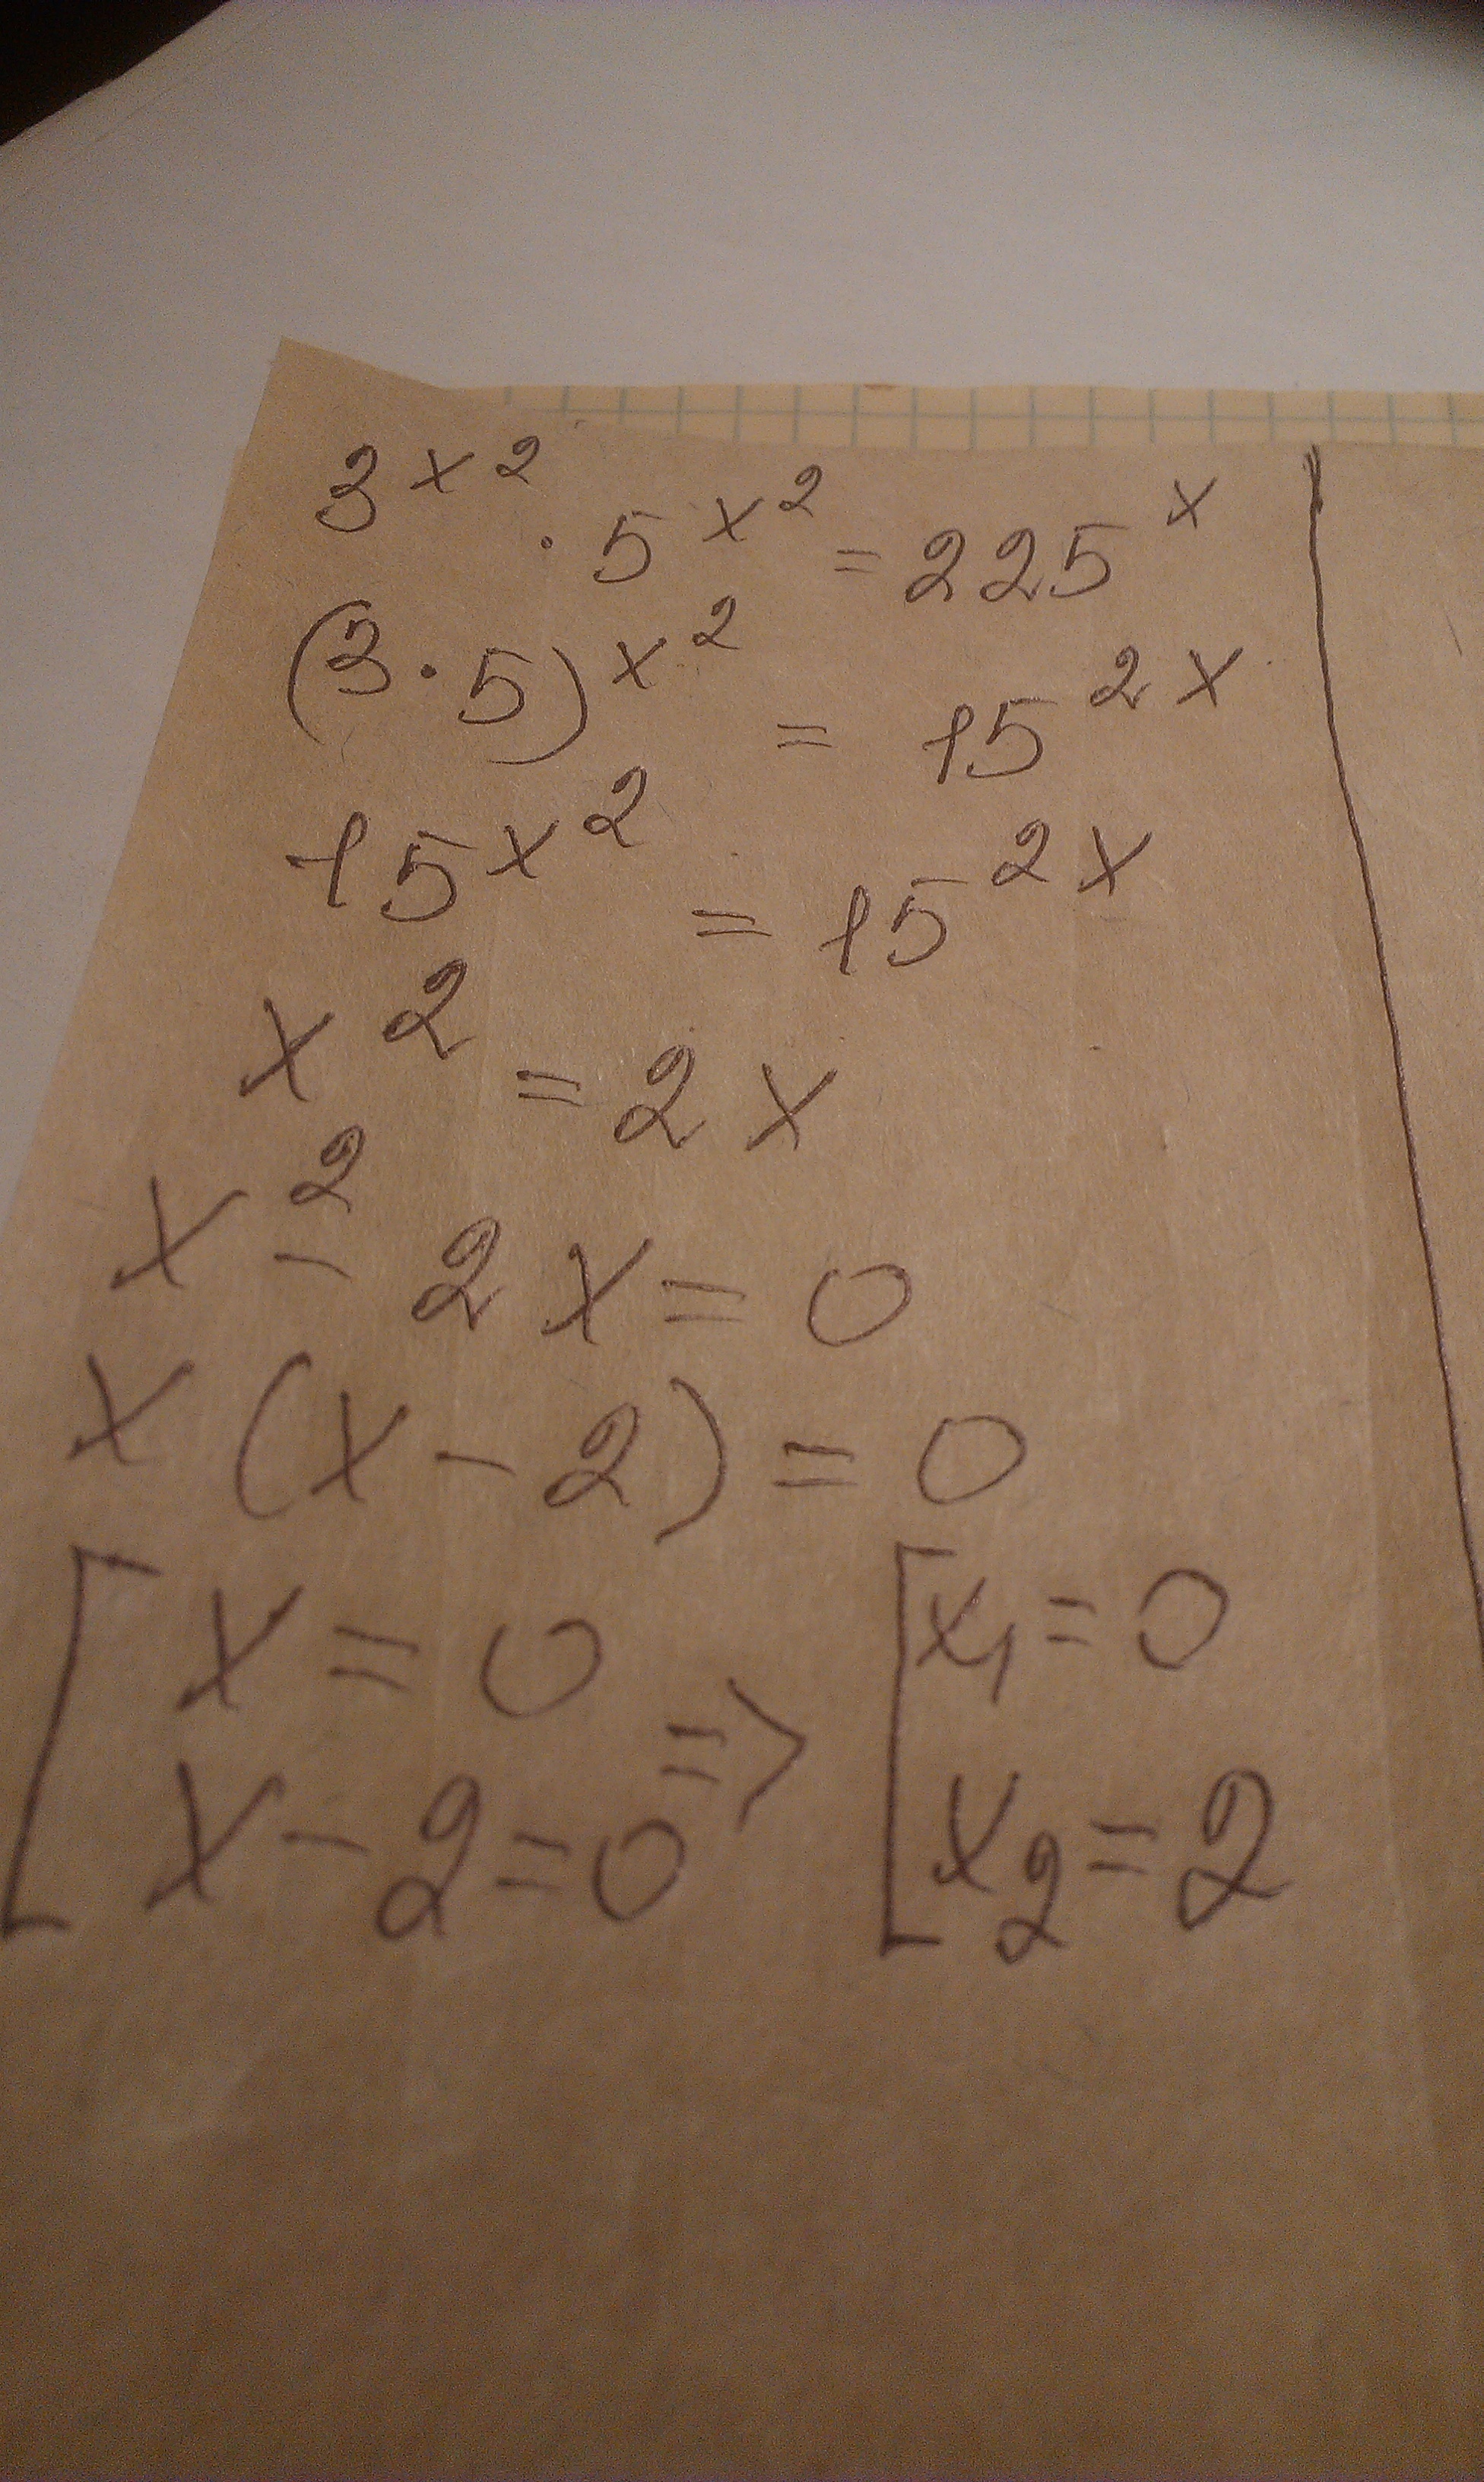 3^{x^2} · 5^{x^2} = 225^x
(3 · 5)^{x^2} = 15^{2x}
15^{x^2} = 15^{2x}
x^2 = 2x
x^2 - 2x = 0
x(x - 2) = 0
[ x = 0 => [ x_1 = 0
x - 2 = 0 x_2 = 2